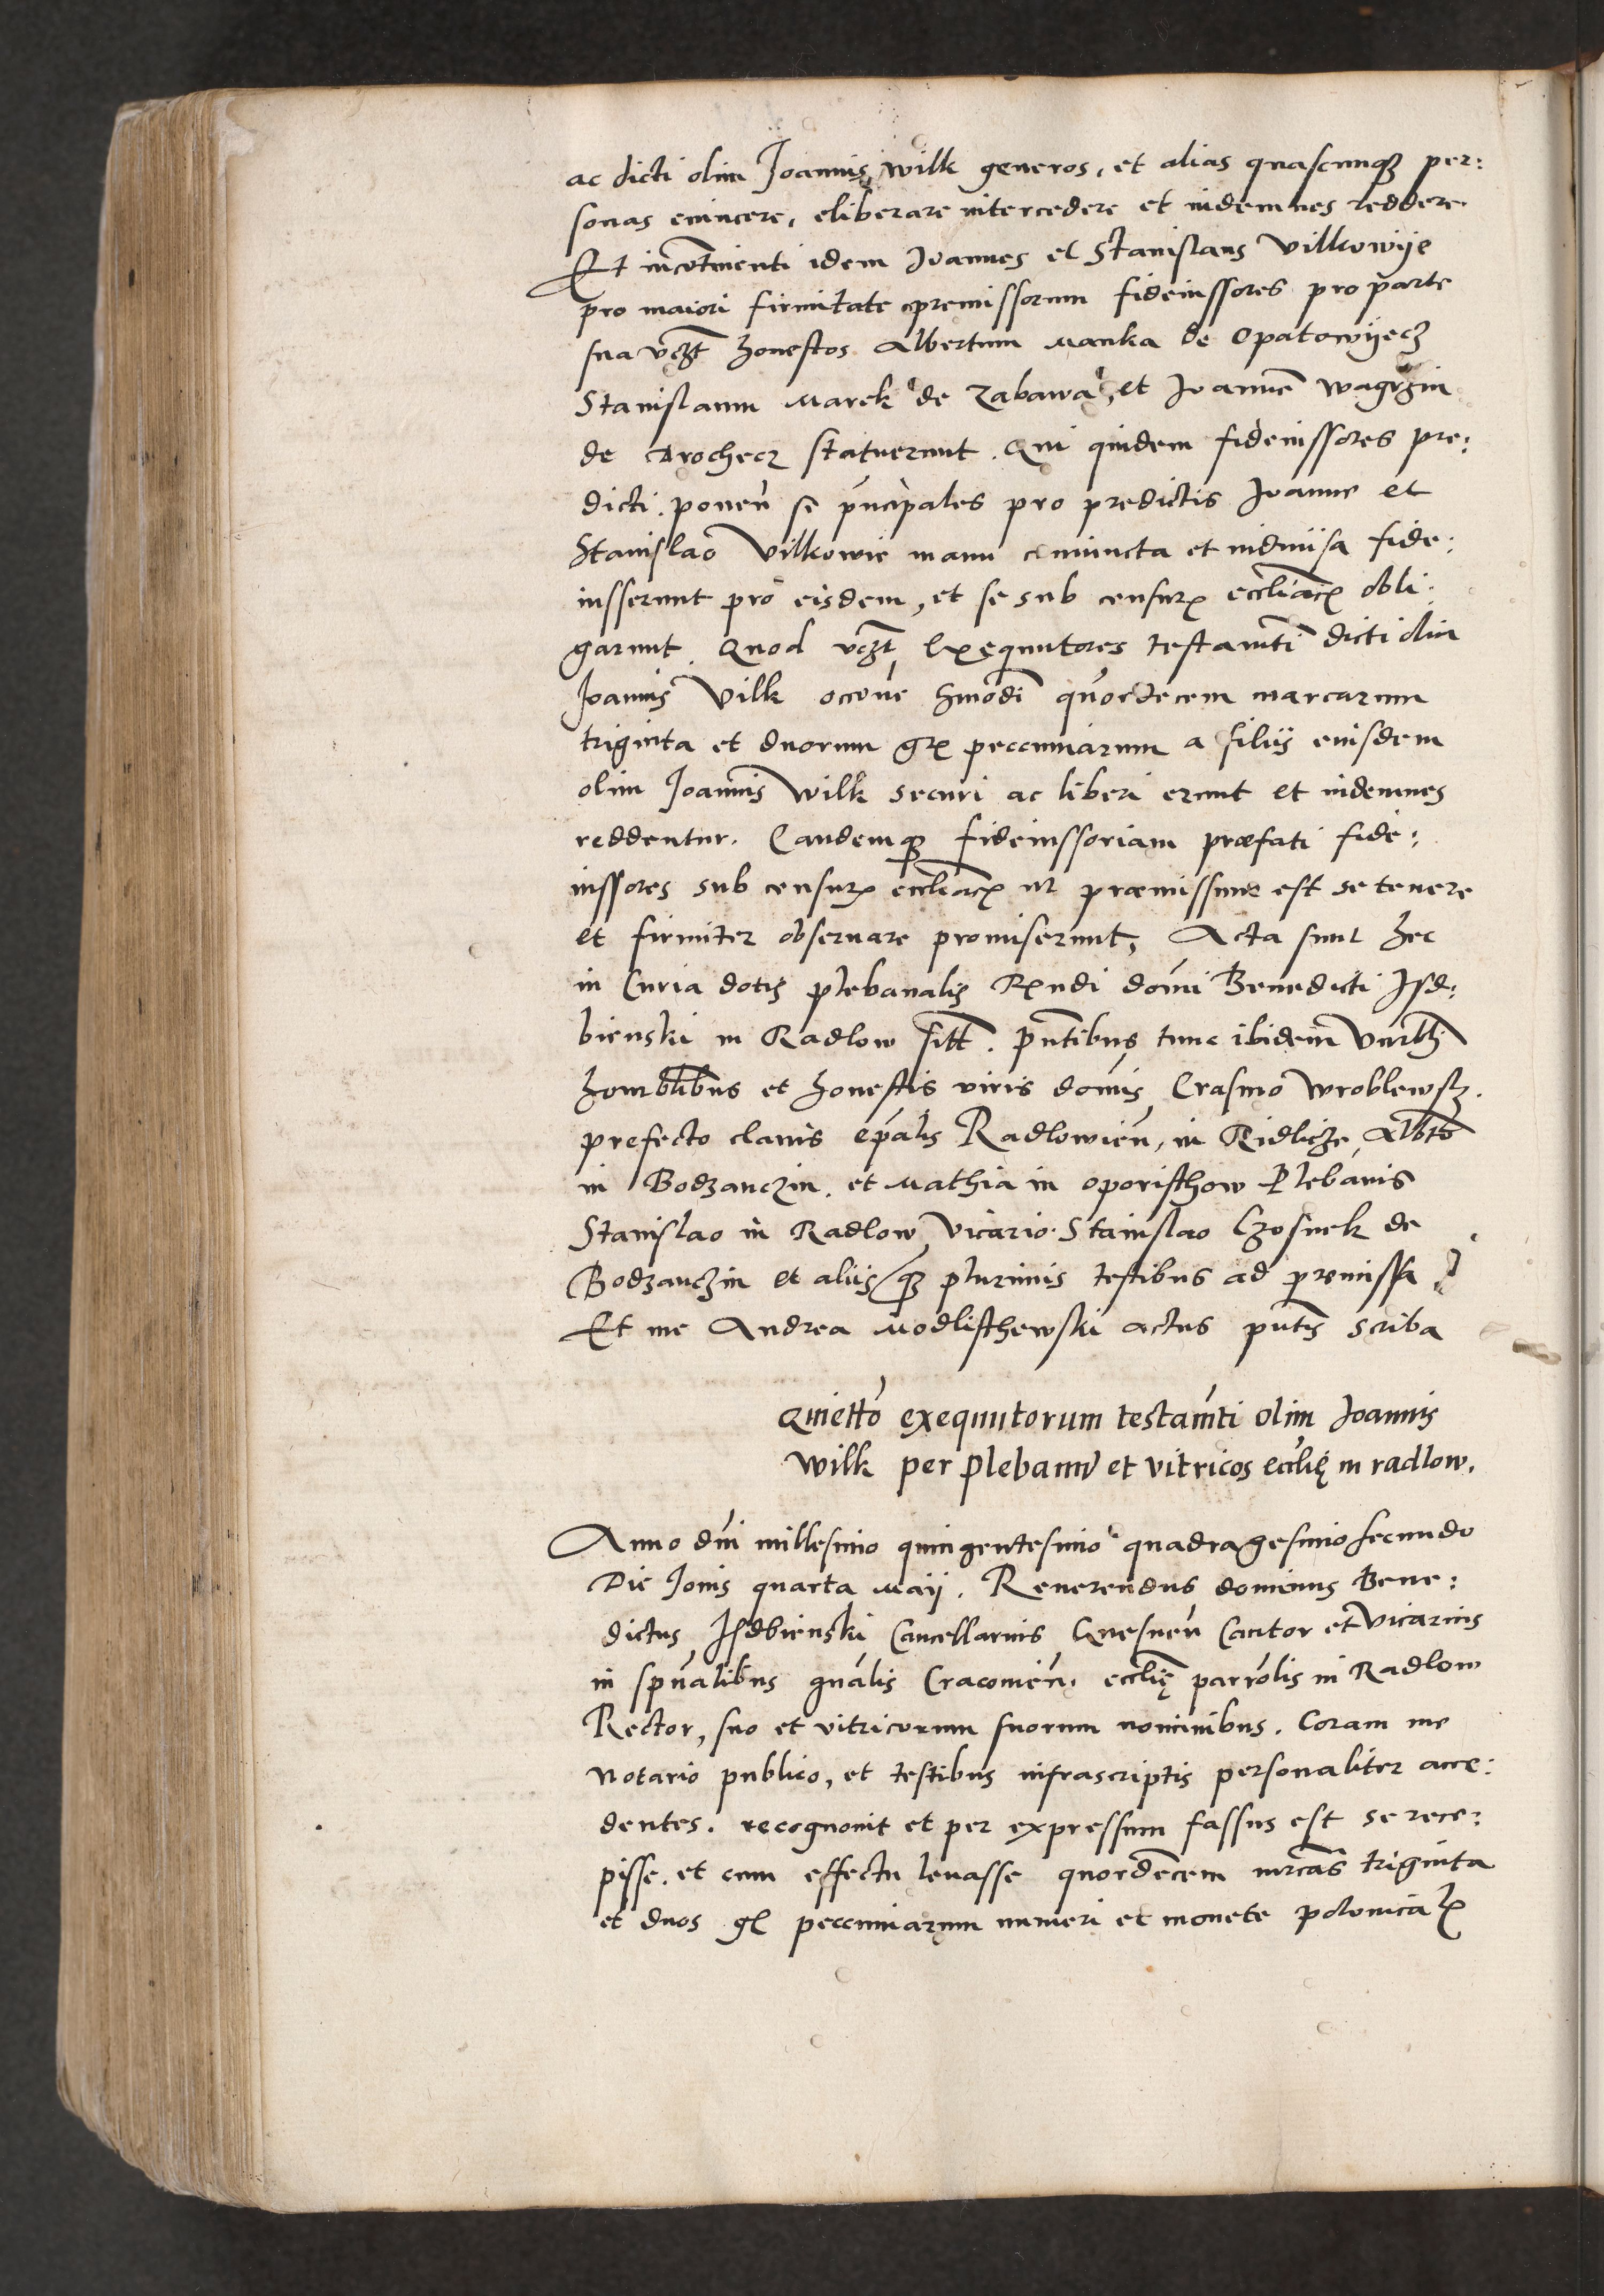 ac dicti olim Joannis wilk generos, et alias quascunq; per:
sonas evincere, eliberare intercedere et indemnes reddere.
Et incontinenti idem Joannes et Stanislaus Vilkowije
pro maiori firmitate premissorum fideiussores pro parte
sua vczt honestos Albertum Manka de Opatowijecz
Stanislaum Marek de Zabawa, et Joannem Wagrzin
de Crochecz statuerunt. Qui quidem fideiussores pre:
dicti. ponen se principales pro predictis Joanne et
Stanislao Vilkowie manu coniuncta et indivisa fide:
iusserunt pro eisdem, et se sub censur eccliac obli:
garunt. Quod vczt exequutores testamti dicti olim
Joannis Vilk occone hmodi quordecem marcarum
triginta et duorum gr peccuniarum a filijs eiusdem
olim Joannis Wilk securi ac liberi erunt et indemnes
reddentur. Eandemq; fideiussoriam præfati fide:
iussores sub censur ecclіac ut præmissum est se tenere
et firmiter observare promiserunt, Acta sunt hec
in Curia dotis plebanalis Rndi domi Benedicti Jsd:
bienski in Radlow sitt. pntibus tunc ibidem
honorblibus et honestis viris domis Erasmo Wroblewsk.
prefecto clavis epalis Radlowien, in Ridlicze Albto
in Bodzanczin. et Mathia in oporisthow Plebanis
Stanislao in Radlow Vicario. Stanislao Czosnek de
Bodzanczin et aliis q; plurimis testibus ad præmissa
Et me Andrea Modlisthewski actus pntis scriba
Quietto exequutorum testamti olim Joannis
Wilk per plebanu et vitricos ecclie in radlow.
Anno dni millesimo quingentesimo quadragesimo secundo
Die Jovis quarta Maij. Reverendus dominus Bene:
dictus Jsdbienski Cancellarius Gnesnen Cantor et Vicarius
in spualibus gnalis Cracovien. ecclię parrolis in Radlow
Rector, suo et vitricorum suorum nominibus. Coram me
Notario publico, et testibus infrascriptis personaliter acce:
dentes. recognovit et per expressum fassus est se rece:
pisse. et cum effectu levasse quordecem mrcas triginta
et duos gr peccuniarum numeri et monete polonical